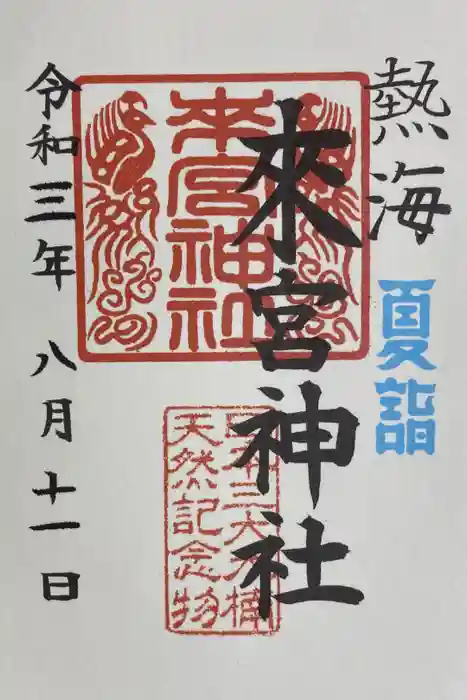 熱海
夏詣
來宮神社
來宮神社
日本三大大楠
天然記念物
令和三年 八月十一日